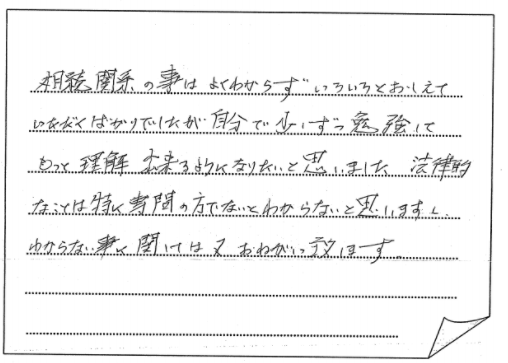 相続関系の事はよくわからず いろいろとおしえて
いただくばかりでしたが 自分で少しずつ勉強して
もっと理解出来るようになりたいと思いました 法律的
なことは特に専間の方でないとわからないと思いますし、
わからない事に関しては又おねがい致します。